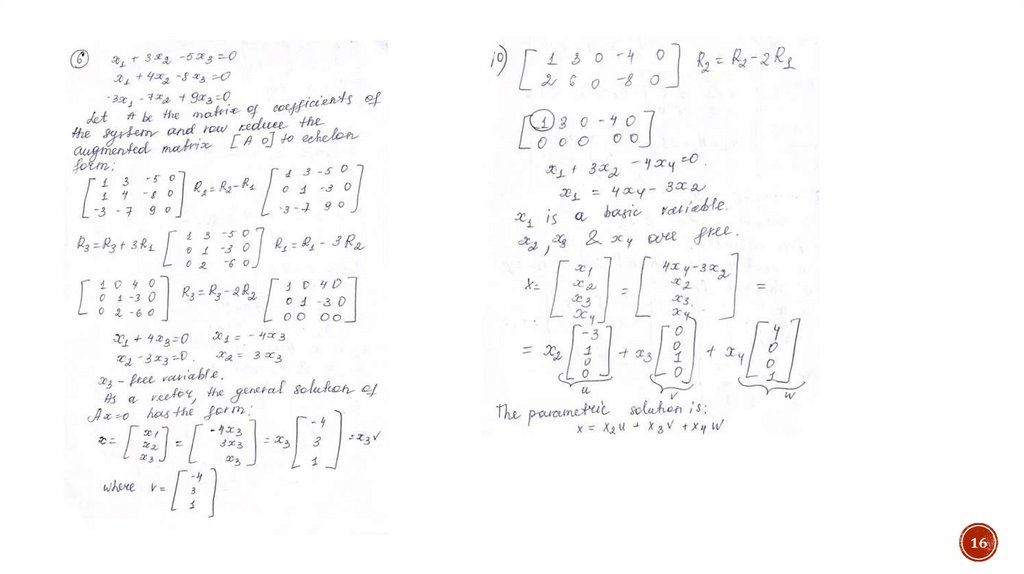 6 x1 + 3x2 - 5x3 = 0
x1 + 4x2 - 8x3 = 0
-3x1 - 7x2 + 9x3 = 0
Let A be the matrix of coefficients of
the system and row reduce the
augmented matrix [A 0] to echelon
form:
[1 3 -5 0
1 4 -8 0
-3 -7 9 0] R2 = R2 - R1 [1 3 -5 0
0 1 -3 0
-3 -7 9 0]
R3 = R3 + 3R1 [1 3 -5 0
0 1 -3 0
0 2 -6 0] R1 = R1 - 3R2
[1 0 4 0
0 1 -3 0
0 2 -6 0] R3 = R3 - 2R2 [1 0 4 0
0 1 -3 0
0 0 0 0]
x1 + 4x3 = 0 x1 = -4x3
x2 - 3x3 = 0. x2 = 3x3
x3 - free variable.
As a vector, the general solution of
Ax=0 has the form:
x = [x1
x2
x3] = [-4x3
3x3
x3] = x3 [-4
3
1] = x3v
where v = [-4
3
1]
10) [1 3 0 -4 0
2 6 0 -8 0] R2 = R2 - 2R1
[1 3 0 -4 0
0 0 0 0 0]
x1 + 3x2 - 4x4 = 0.
x1 = 4x4 - 3x2
x1 is a basic variable.
x2, x3 & x4 are free.
x = [x1
x2
x3
x4] = [4x4 - 3x2
x2
x3.
x4] =
= x2 [-3
1
0
0] + x3 [0
0
1
0] + x4 [4
0
0
1]
u v w
The parametric solution is:
x = x2u + x3v + x4w
16